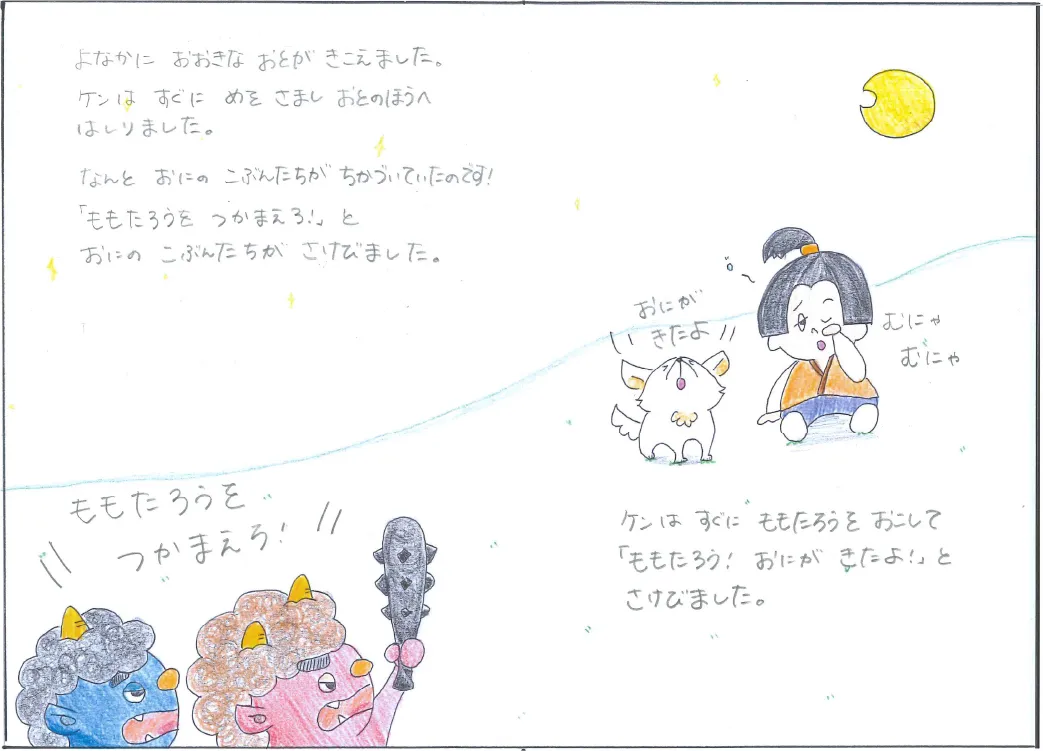 よなかに おおきな おとが きこえました。
ケンは すぐに めを さまし おとのほうへ
はしりました。
なんと おにの こぶんたちが ちかづいていたのです!
「ももたろうを つかまえろ!」と
おにの こぶんたちが さけびました。
おにが
きたよ
むにゃ
むにゃ
ももたろうを
つかまえろ!
ケンは すぐに ももたろうを おこして
「ももたろう! おにが きたよ!」と
さけびました。